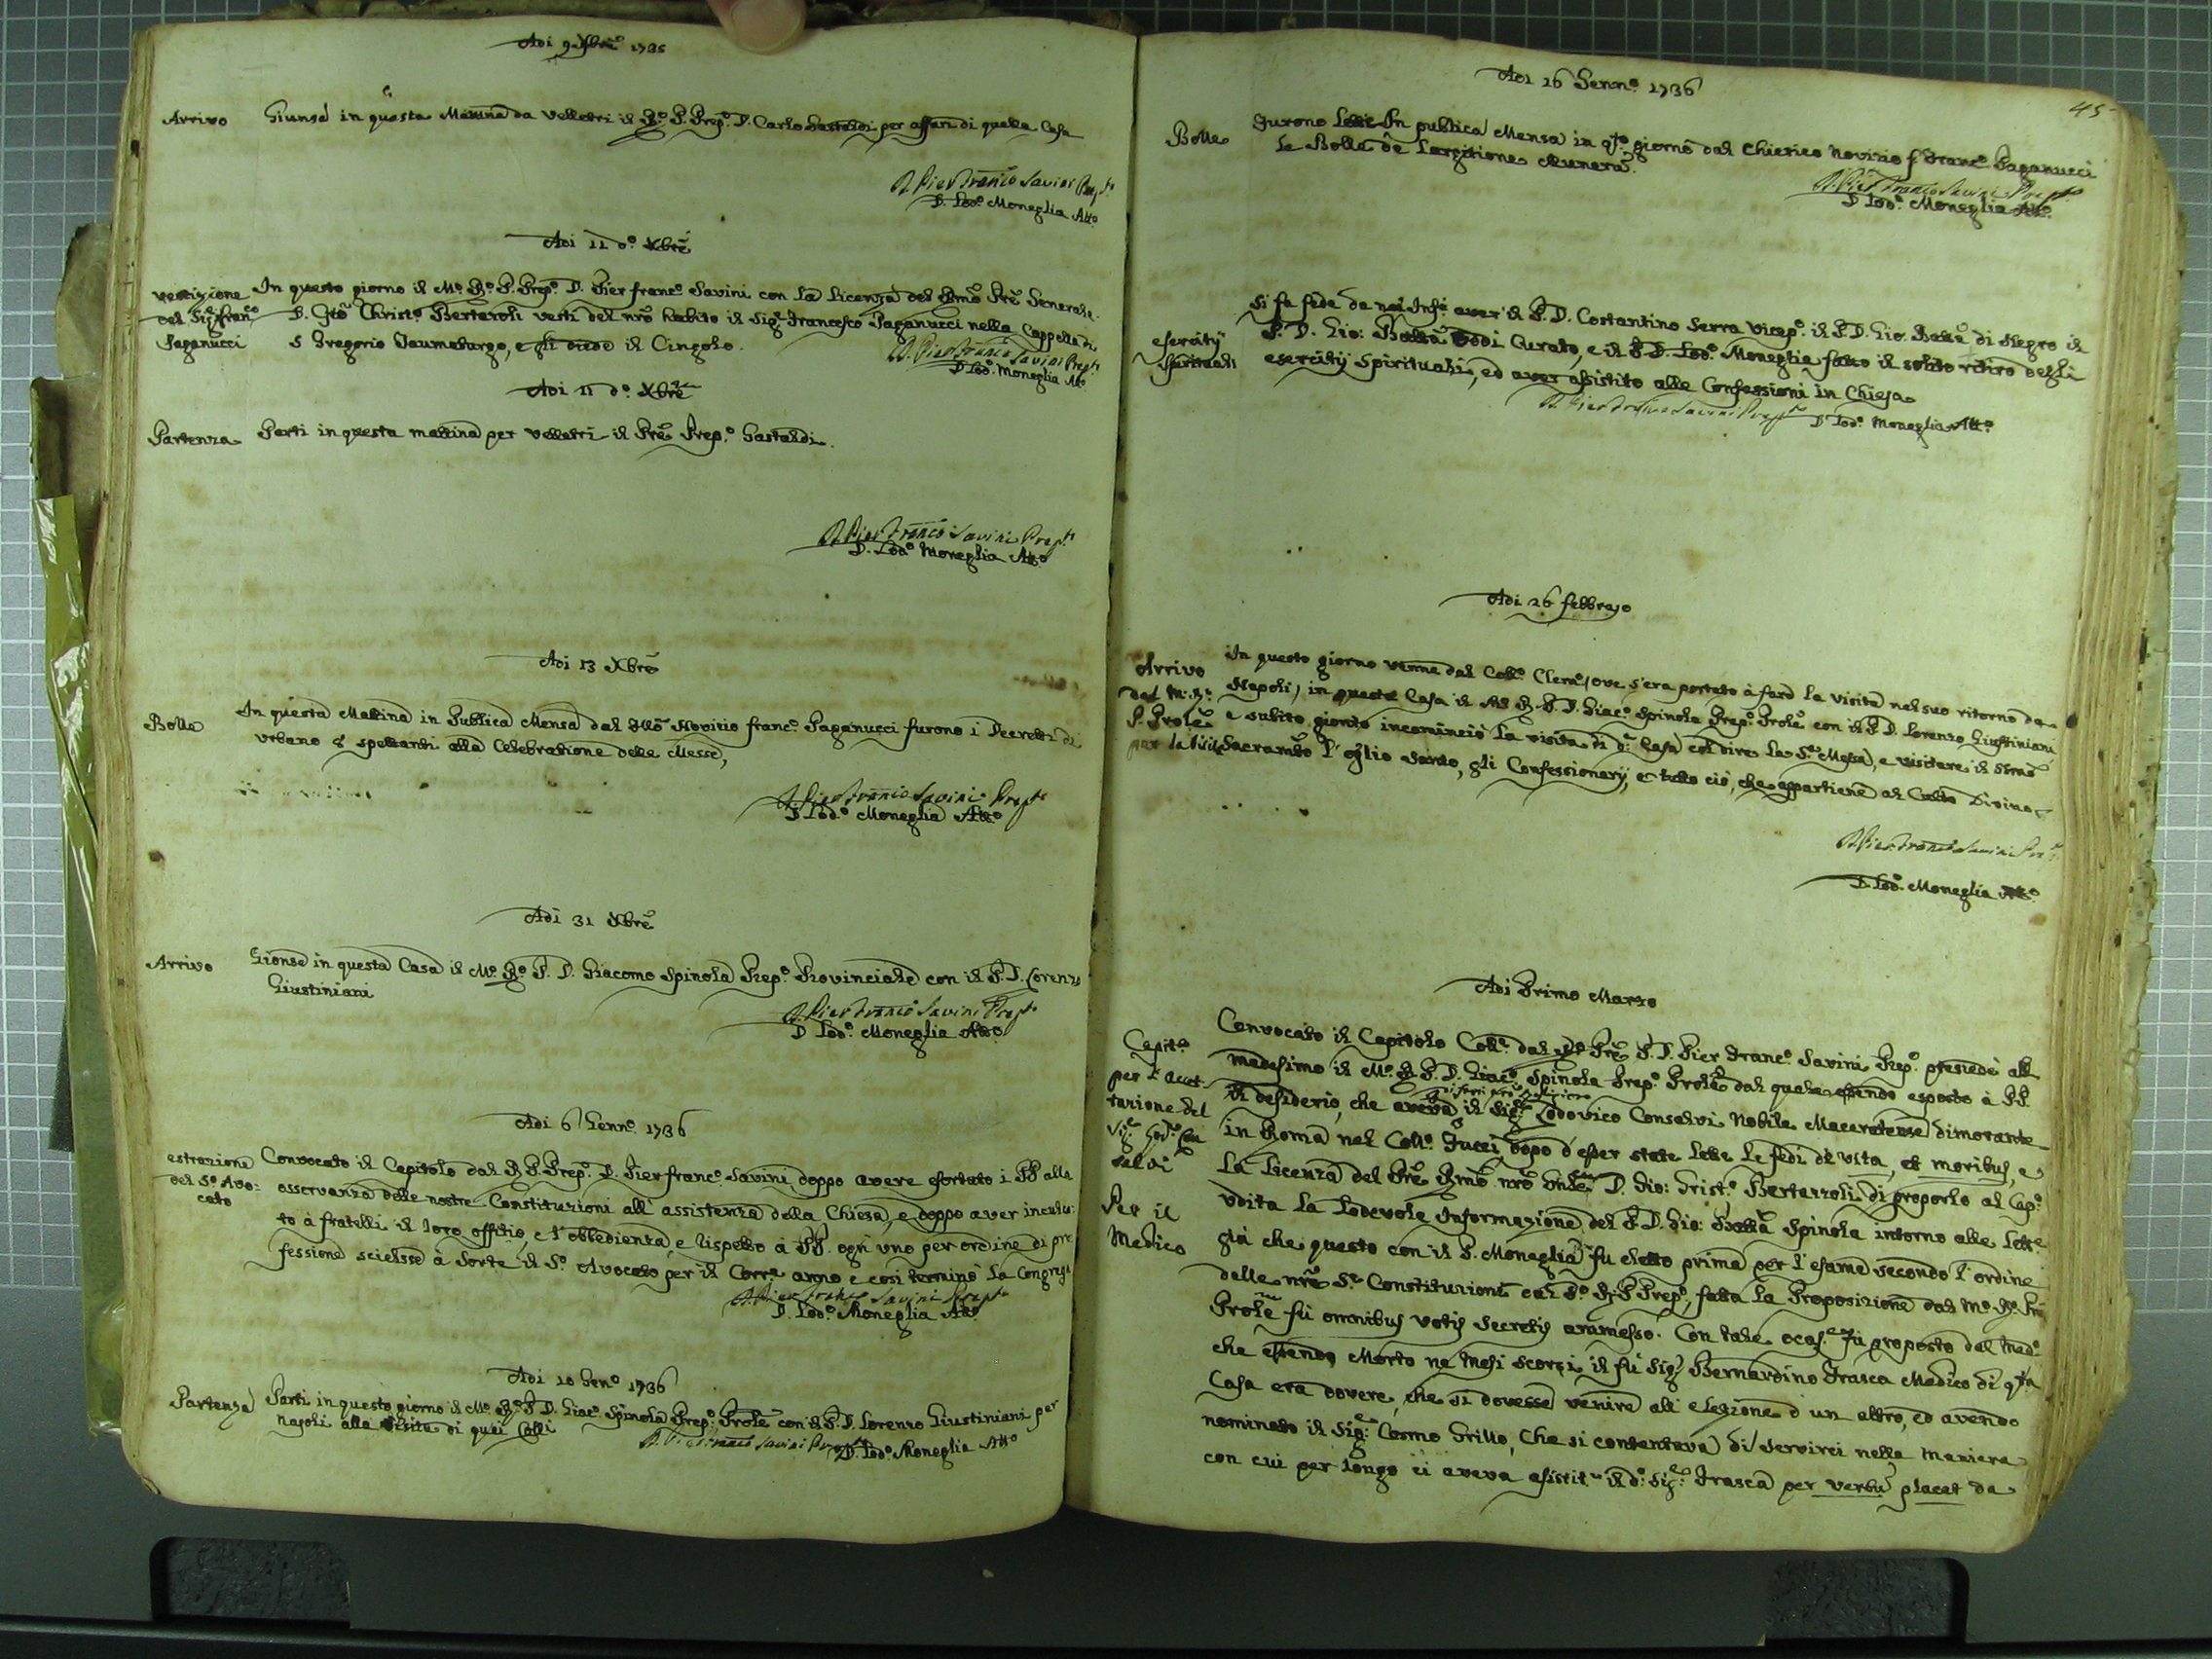 Adi 9 Xbrẽ 1735
Arrivo Giunse in questa Mattina da Velletri il R.º P. Prep.º D. Carlo Gastaldi per affari di quella Casa
D. Pier Franc.º Savini Prep.to
D. Lod.º Moneglia Att.º
Adi 11 d.º Xbrẽ
vestizione In questo giorno il M.º R.º P. Prep.º D. Pier franc.º Savini con la licenza del Rmõ Prẽ Generale
del Sig.r fran.co D. Christ.º Bertazoli vestì del nrõ habito il Sig.r Francesco Paganucci nella Cappella di
Paganucci S Gregorio Taumaturgo, e gli diede il Cingolo.
D. Pier Franc.º Savini Prep.to
D Lod.º Moneglia Att.º
Adi 11 d.º Xbrẽ
Partenza Partì in questa mattina per Velletri il Prẽ Prep.º Gastaldi.
D. Pier Franc.º Savini Prep.to
D. Lod.º Moneglia Att.º
Adi 13 Xbrẽ
Bolle In questa Mattina in Publica Mensa dal Novizio franc.º Paganucci furono i Decretti di
Urbano 8 spettanti alla Celebratione delle Messe,
D. Pier Franc.º Savini Prep.to
D Lod.º Moneglia Att.º
Adi 31 Xbrẽ
Arrivo Gionse in questa Casa il M.º R.º P. D. Giacomo Spinola Prep.º Provinciale con il P. D. Lorenzo
Giustiniani
D. Pier Franc.º Savini Prep.to
D Lod.º Moneglia Att.º
Adi 6 Genn.º 1736
estrazione Convocato il Capitolo dal R P. Prep.º D. Pier franc.º Savini, doppo avere esortato i PP alla
del S.º Avo: osservanza delle nostre Constituzioni all' assistenza della Chiesa, e doppo aver incul:
cato to à fratelli il loro offitio, e l'obbedienza, e rispetto à PP. ogn'uno per ordine di pro
fessione scielse à sorte il S.º Avocato per il Corr.e anno e così terminò la Congreg.e
D. Pier Franc.º Savini Prep.to
D. Lod.º Moneglia Att.º
Adi 10 Gen.º 1736
Partenza Partì in questo giorno il M.º R.º P. D. Giac.º Spinola Prep.º Prõle con il P. D. Lorenzo Giustiniani per
Napoli alla visita di quei Colli
D. Pier Franc.º Savini Prep.to D. Lod.º Moneglia Att.º
45
Adi 26 Genn.º 1736
Bolle Furono lette in publica Mensa in q.to giorno dal Chierico Novizio f Franc.º Paganucci
le Bolle de Largitione Munerũ.
D. Pier Franc.º Savini Prep.to
D Lod.º Moneglia Att.º
Si fa fede da noi Inf.i aver il P. D. Costantino Serra vicep.º il P. D. Gio. Batta di Negro il
esercitij P. D. Gio: Batta Oddi Curato, e il P. D. Lod.º Moneglia fatto il solito ritiro degli
spirituali esercitij Spirituali, ed aver assistito alle Confessioni in Chiesa
D. Pier Franc.º Savini Prep.to D Lod.º Moneglia Att.º
Adi 26 febbrajo
Arrivo In questo giorno venne dal Coll.º Clem.º, ove s'era portato à fare la visita nel suo ritorno da
del M. R.º Napoli, in questa Casa il M R P. D. Giac.º Spinola Prep.º Prõle con il P D. Lorenzo Giustiniani
P. Prõle e subito gionto incominciò la visita di q.a Casa col dire la S.ta Messa, e visitare il Ssmõ
per la visita Sacramẽto l'oglio santo, gli Confessionarij, e tutto ciò, che appartiene al Culto Divino
D. Pier Franc.º Savini
D. Lod.º Moneglia Att.º
Adi Primo Marzo
Capit.º Convocato il Capitolo Coll.e dal Prẽ P. D. Pier Franc.º Savini Prep.º presiedè all
per l' accet- medesimo il M.º R P. D. Giac.º Spinola Prep.º Prõle dal quale essendo esposto à PP.
tazione del il desiderio, che aveva di farsi nrõ Religioso il Sig.r Lodovico Consalvi Nobile Maceratense dimorante
Sig.r Lod.º Con in Roma nel Coll.º Fucci, dopo d'esser state lette le fedi de vita, et moribus, e
salvi La Licenza del Prẽ Rmõ nrõ Gnle D. Gio: Crist.º Bertazzoli di proporlo al Cap.º
Per il udita la lodevole Informazione del P. D. Gio: Batta Spinola intorno alle lett.e
Medico già che questo con il P. Moneglia fu eletto prima per l'esame secondo l'ordine
delle nrẽ S.e Constituzioni dal P.º R P Prep.º, fatta la Proposizione dal M.º R.º Prẽ
Prõle fù omnibus votis secretis ammesso. Con tale ocas.e fù proposto dal med.º
che essendo Morto ne mesi scorsi il fù Sig.r Bernardino Frasca Medico di q.ta
Casa era dovere, che si dovesse venire all' elezione d un altro, ed avendo
nominato il Sig.r Cosmo Grillo, che si contentava di servirci nella maniera
con cui per longo ci aveva assistit.º il d.º Sig.r Frasca per verbũ placet da